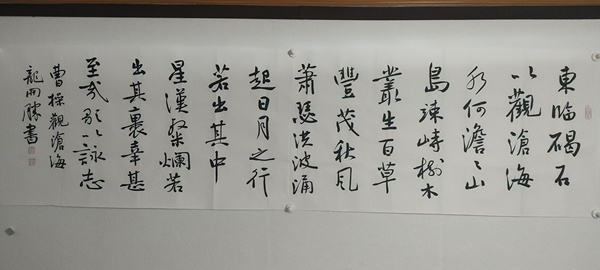 東临碣石
以觀滄海
水何澹々山
島竦峙樹木
叢生百草
豐茂秋風
蕭瑟洪波涌
起日月之行
若出其中
星漢粲爛若
出其裏幸甚
至哉歌以詠志
曹操觀滄海
龍雨勝書